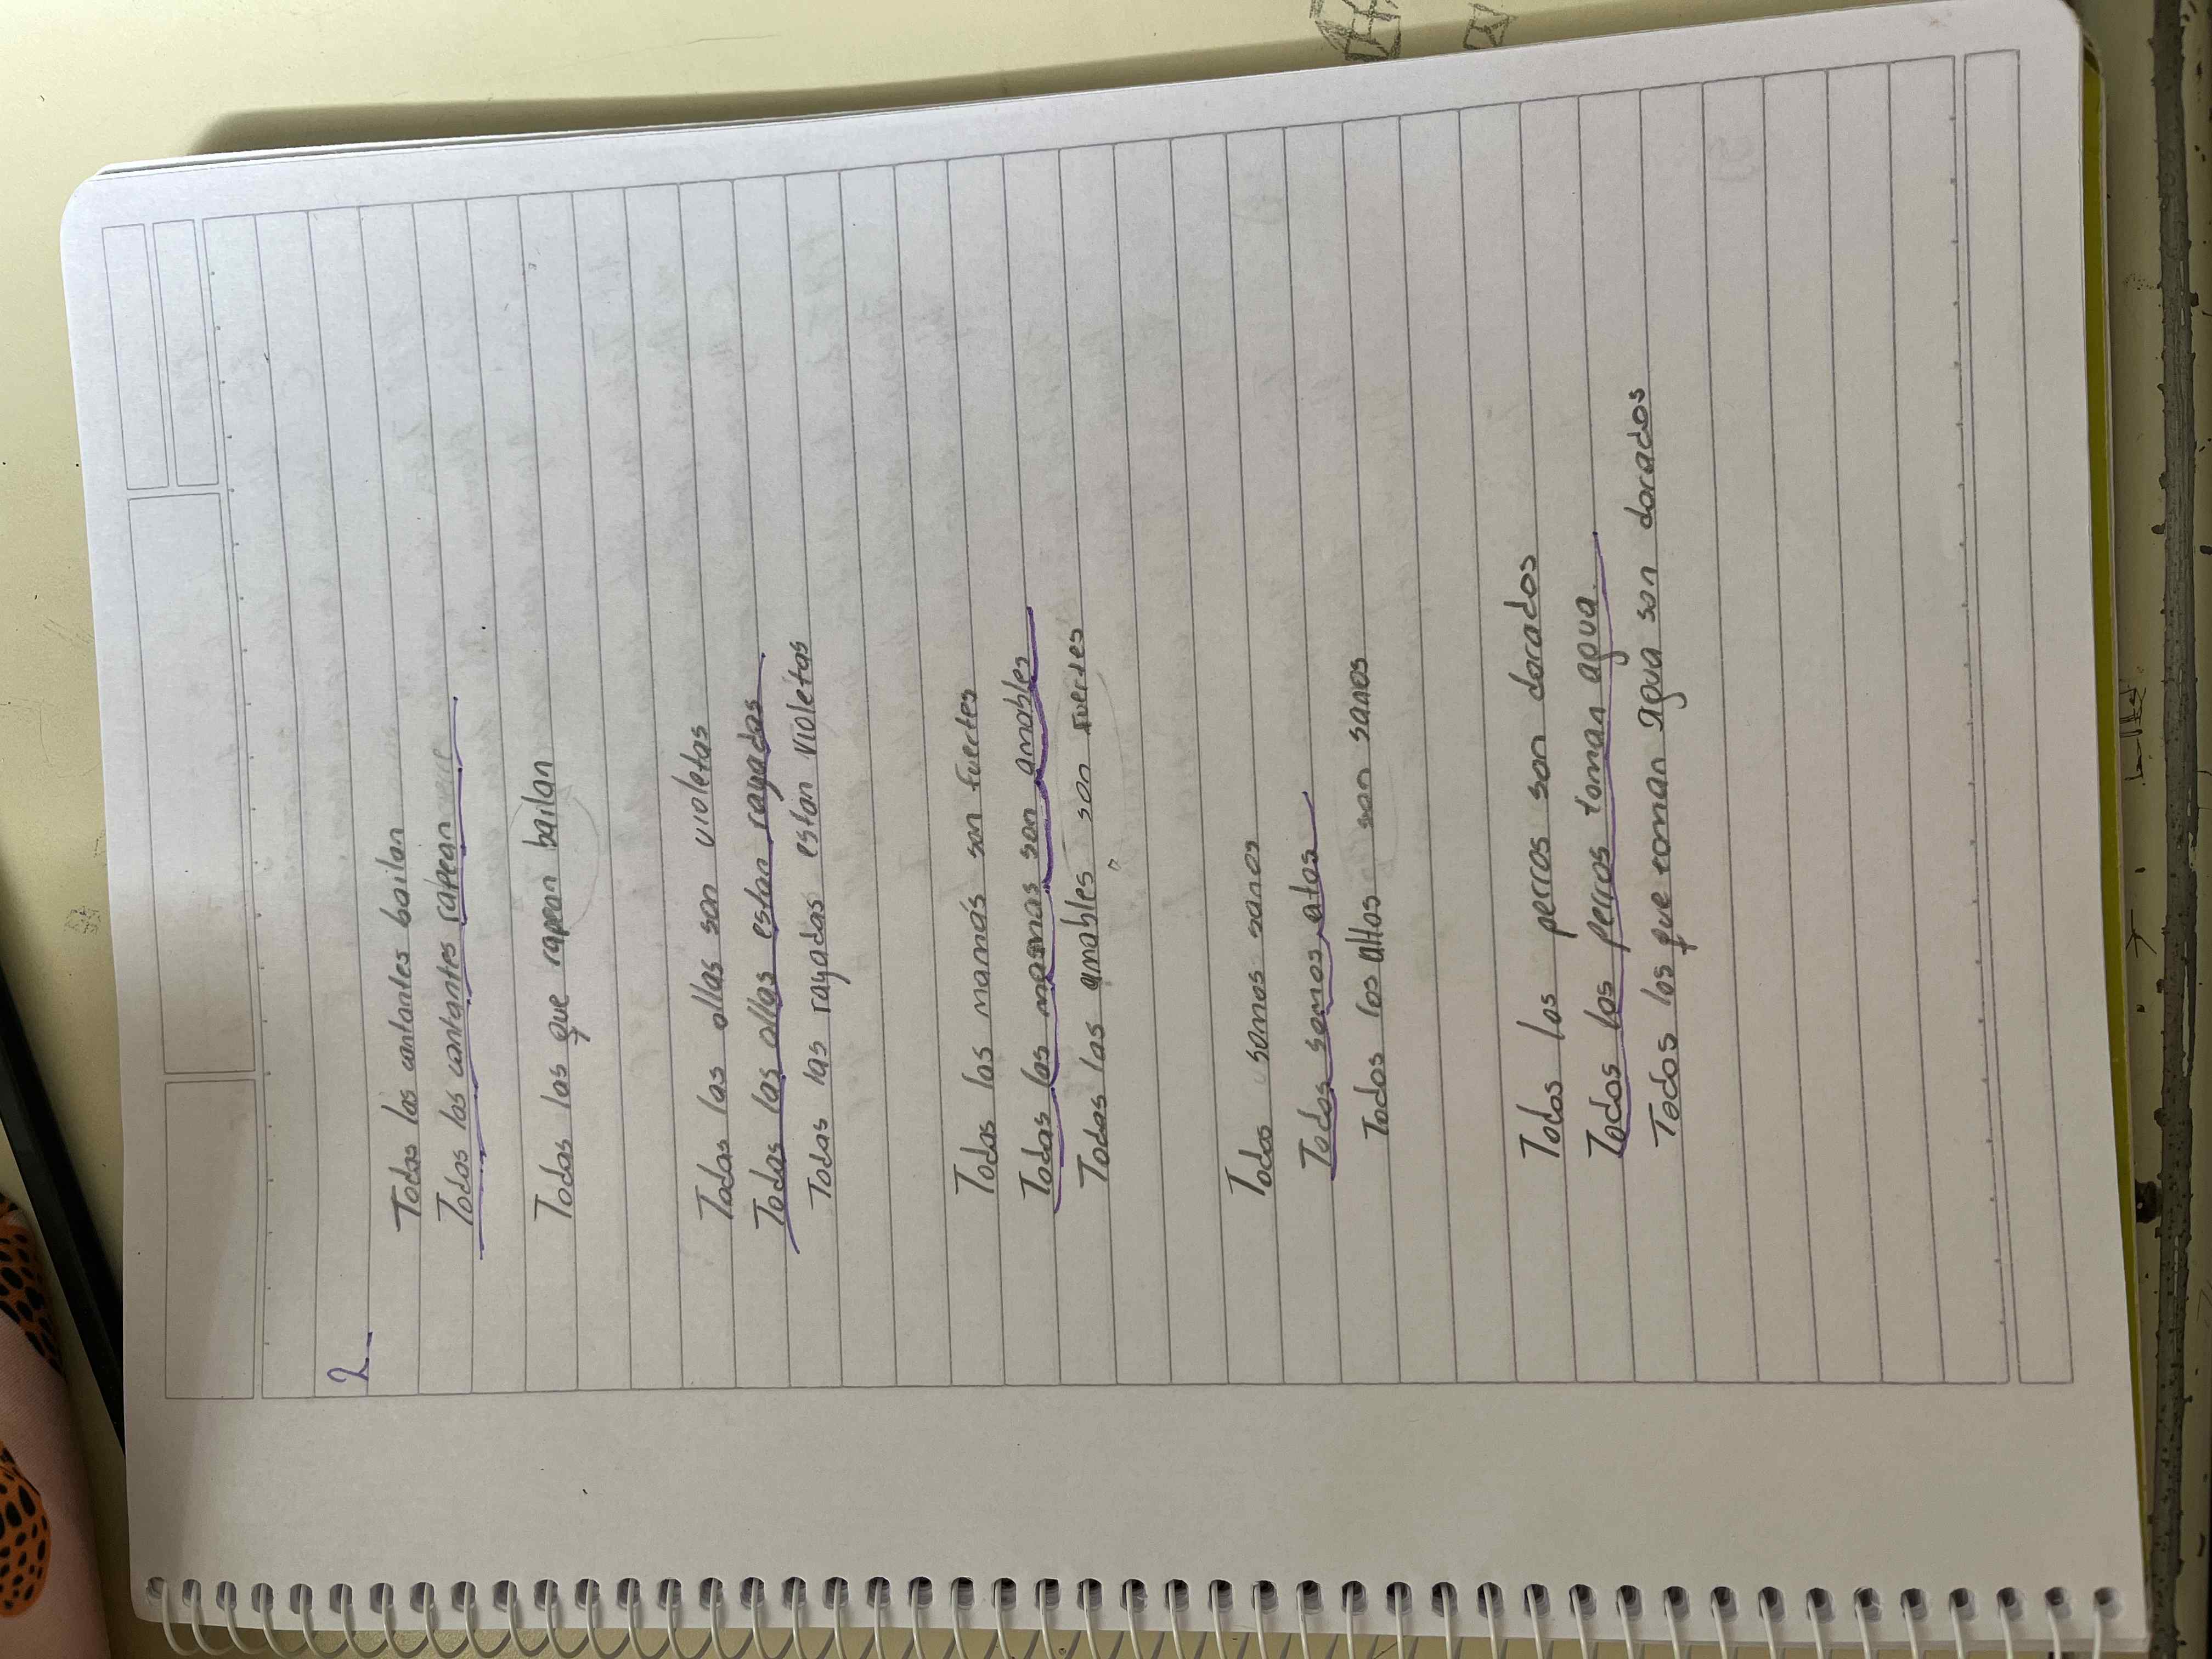 2
Todos los cantantes bailan
Todos los cantantes rapean
Todos los que rapean bailan
Todas las ollas son violetas
Todas las ollas estan rayadas
Todas las rayadas estan violetas
Todas las mamás son fuertes
Todas las mamas son amables
Todas las amables son fuertes
Todos somos sanos
Todos somos atos
Todos los altos son sanos
Todos los perros son dorados
Todos los perros toman agua
Todos los que toman agua son dorados